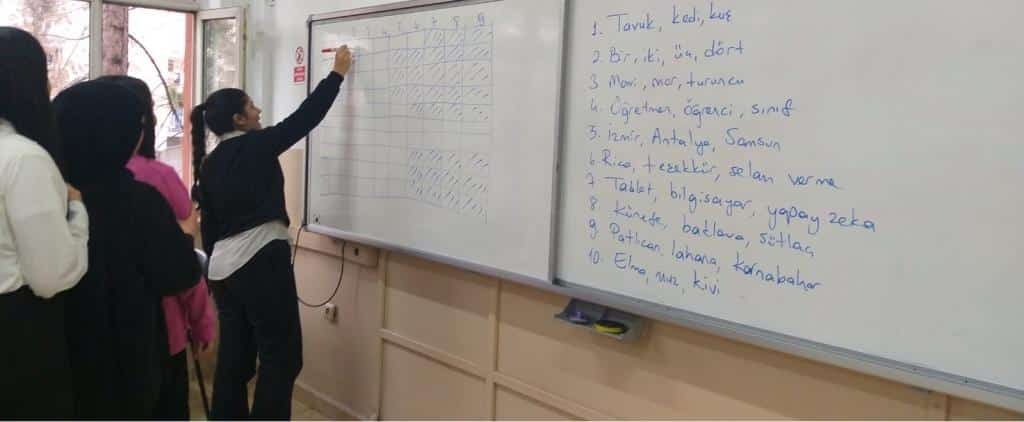 1. Tavuk, kedi, kuş
2. Bir, iki, üç, dört
3 Mavi, mor, turuncu
4. Öğretmen, öğrenci, sınıf
5. İzmir, Antalya, Samsun
6. Rica, teşekkür, selam verme
7. Tablet, bilgisayar, yapay zeka
8 Künefe, baklava, sütlaç
9. Patlıcan, lahana, karnabahar
10. Elma, muz, kivi